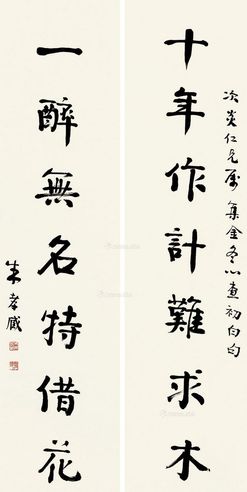 次炎仁兄属集金冬心查初白句
十年作計難求木
一醉無名特借花
朱孝臧